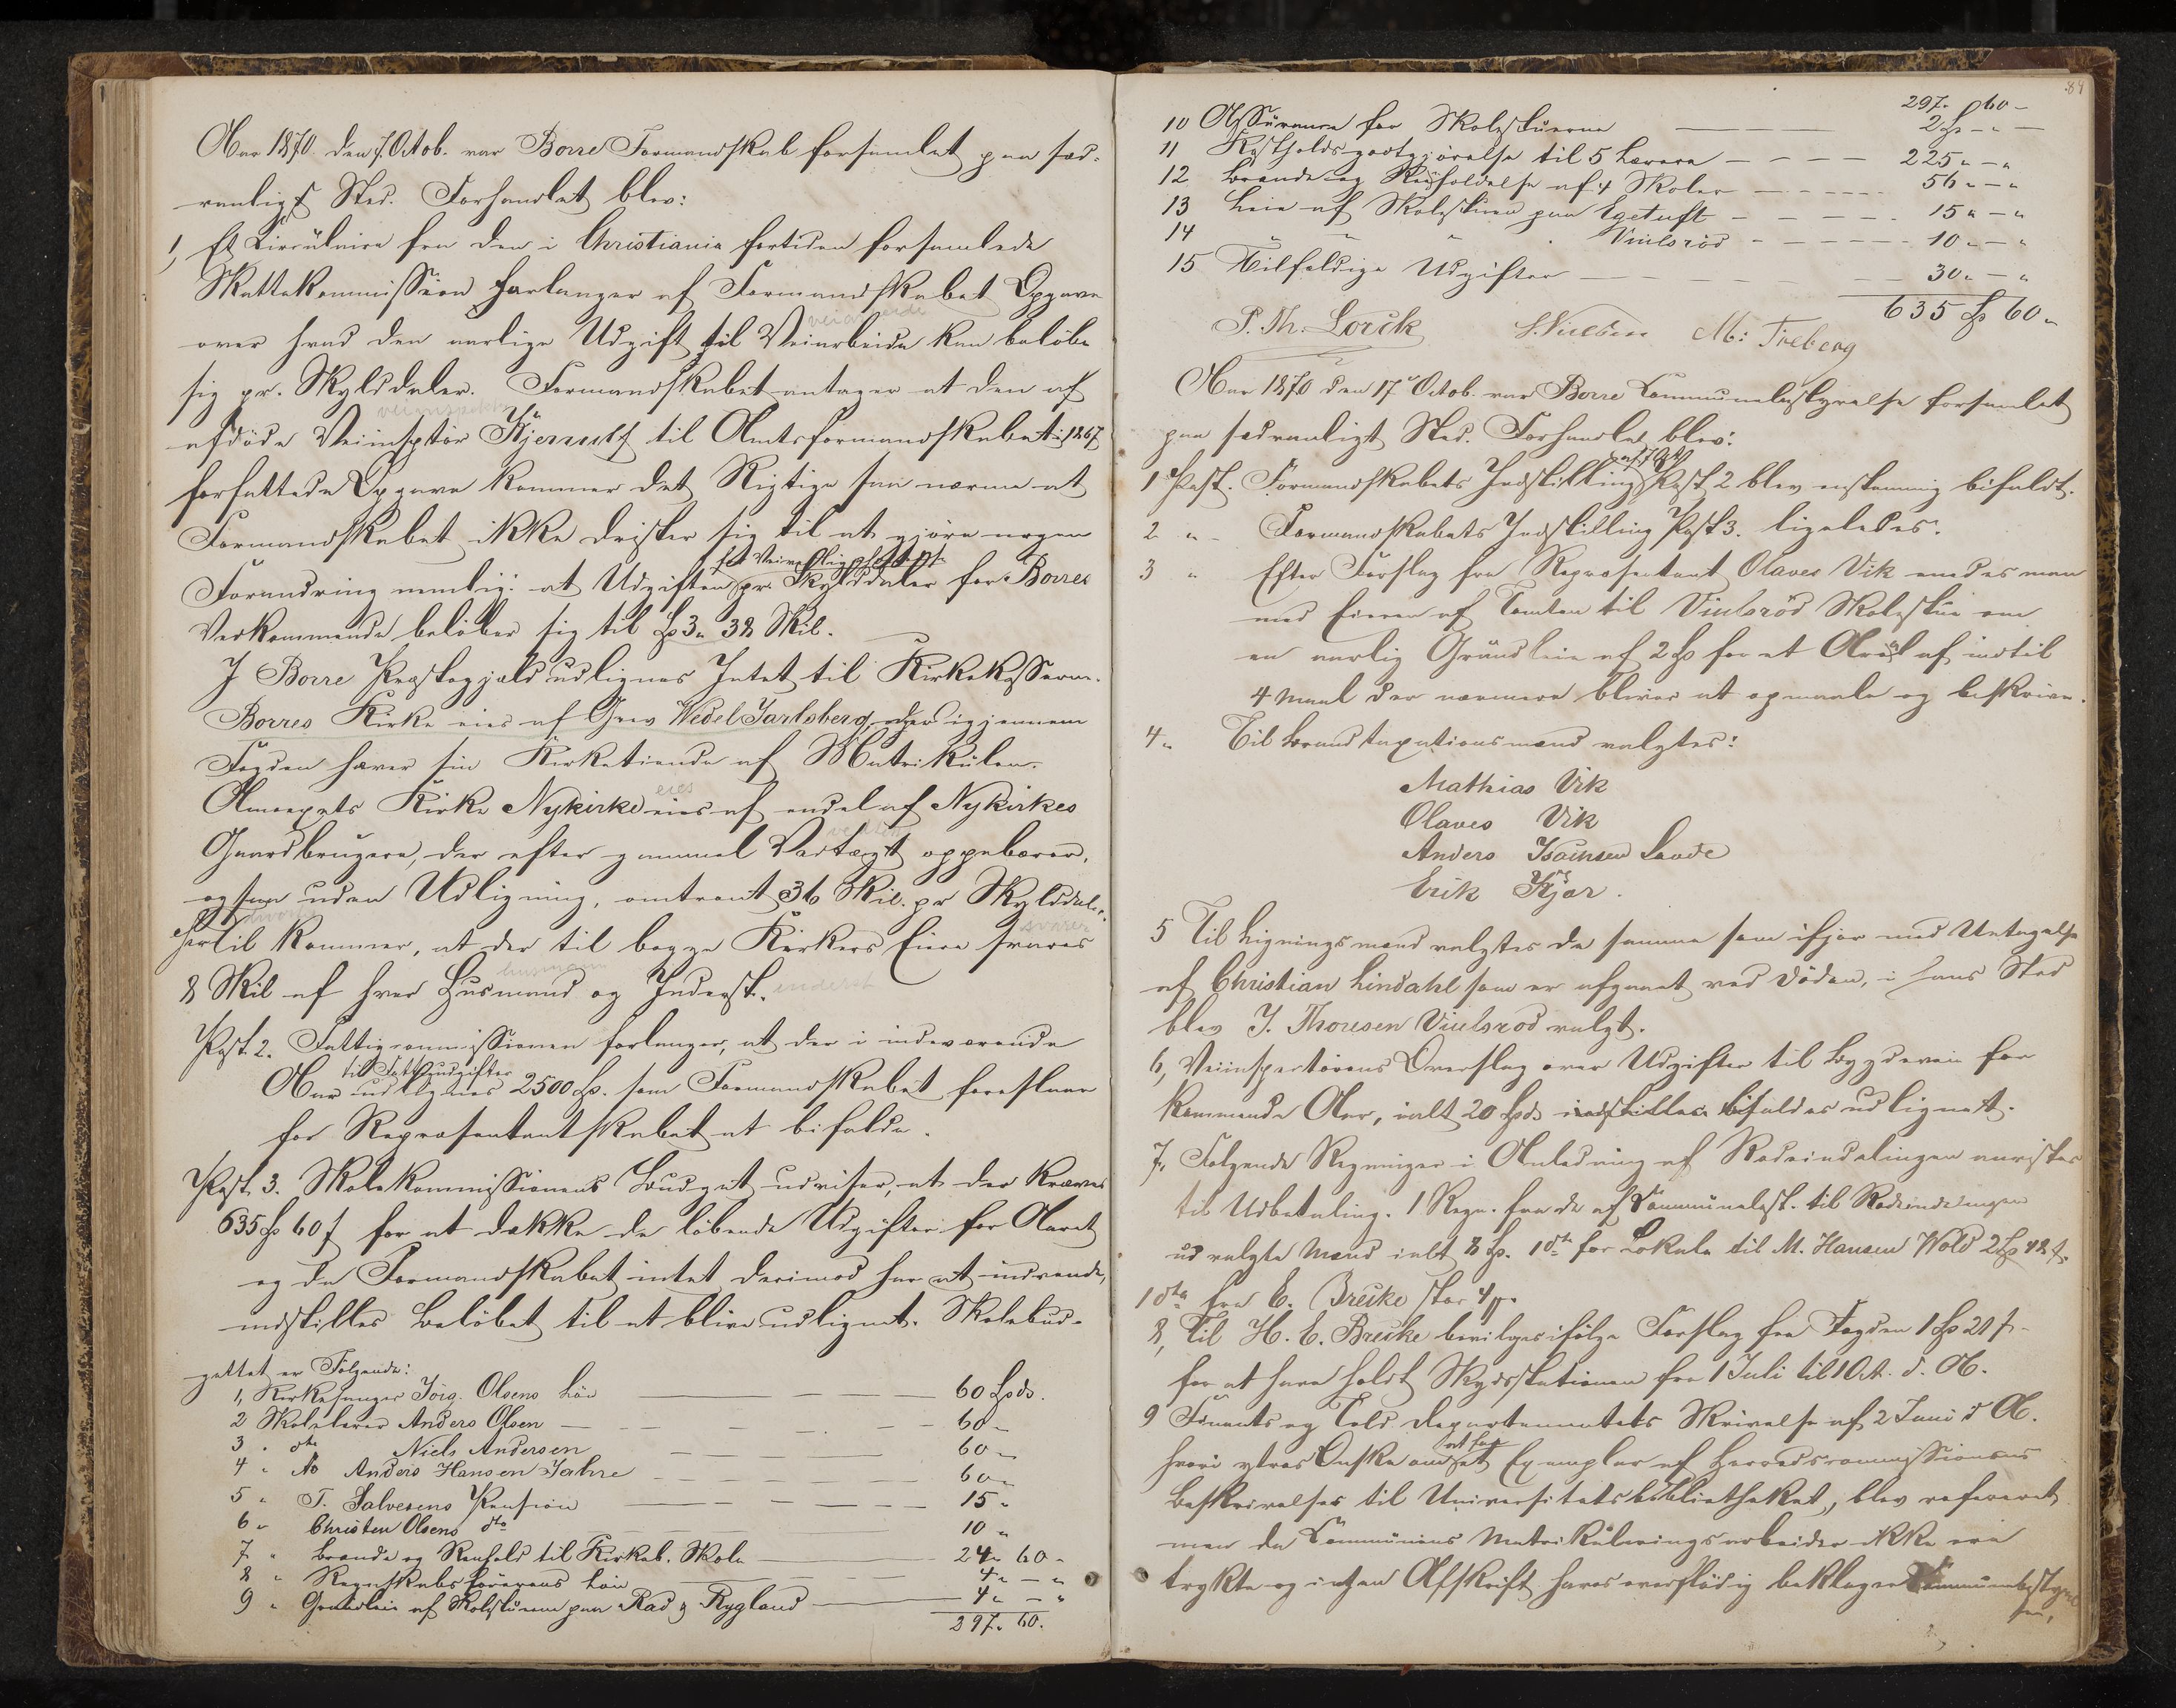 Aar 1870 den 7. Octob. var Borre Formandskab forsamlet paa sæd-
vanligt Sted. Forhandlet blev:
1, Et Circulaire fra den i Christiania fortiden forsamlede
Skattekommission forlanger af Formandskabet Opgave
over hvad den aarlige Udgift til Veiarbeide kan beløbe
sig pr. Skylddaler. Formandskabet antager at den af
afdøde Veiinsptør Kjerrulf til Amtsformandskabet i 1867
forfattede Opgave kommer det Rigtige saa nærme at
Formandskabet ikke drister sig til at gjøre nogen
Forandring nemlig: at Udgiften pr. Skylddaler for Borres
Vedkommende beløber sig til 3 " 38 Skil.
I Borre Præstegjæld udlignes Intet til Kirkekasserne.
Borres Kirke eies af Grev Wedel Jarlsberg, der igjennem
Fogden hæver sin Kirketiende af Matrikulen.
Annexets Kirke Nykirke eies af endel af Nykirkes
Gaardbrugere, der efter gammel Vedtægt oppebærer,
ogsaa uden Udligning, omtrent 36 Skil. pr Skylddaler.
Hertil kommer, at der til begge Kirkers Eiere svares
8 Skil af hver Husmand og Inderst.
Post 2. Fattigcommissionen forlanger, at der i indeværende
til Fattigudgifter
Aar udlignes 2500 . som Formandskabet foreslaar
for Repræsentantskabet at bifalde.
Post 3. Skolekommissionens Budget udviser, at der kræves
635 60 ſ for at dække de løbende Udgifter for Aaret
og da Formandskabet intet derimod har at indvende,
indstilles Beløbet til at blive udlignet. Skolebud-
gettet er Følgende:
1, Kirkesanger Jørg. Olsens Løn 60 Spds.
2 Skolelærer Anders Olsen 60 "
3 " dto Niels Andersen 60 "
4 " do Anders Hansen Jahre 60 "
5 " T. Salvesens Pension 15 "
6 " Christen Olsens dto 10 "
7 " Brænde og Renhold til Kirkeb. Skole 24 " 60 "
8 " Regnskabsførerens Løn 4 " — "
9 " Grundleie af Skolstuerne paa Rad og Rygland 4 " — "
297 " 60.
84
297 " 60 —
10 Assurance for Skolestuerne 2 — " —
11 Kostholdsgodtgjørelse til 5 Lærere 225 " — "
12 Brænde og Renholdelse af 4 Skoler 56 " — "
13 Leie af Skolestuen paa Egetuft 15 " — "
14 " " " Viulsrød 10 " — "
15 Tilfældige Udgifter 30 " — "
635 60 "
P. Th. Lorck S. Nielsen M: Freberg
Aar 1870 den 17de Octob. var Borre Communebestyrelse forsamlet
paa sædvanligt Sted. Forhandlet blev:
1 Post. Formandskabets Indstilling Post 2 blev enstemmig bifaldt.
2 " Formandskabets Indstilling Post 3. ligeledes.
3 " Efter Forslag fra Repræsentant Olaves Vik enedes man
med Eieren af Tomten til Viulsrød Skolestue om
en aarlig Grundleie af 2 for et Areal af indtil
4 Maal der nærmere bliver at opmaale og beskrive.
4 " Til Brandtaxationsmænd valgtes:
Mathias Vik
Olaves Vik
Anders Isachsen Sande
Erik Kjær.
5 Til Ligningsmænd valgtes de samme som ifjor med Undtagelse
af Christian Lindahl som er afgaaet ved Døden, i hans Sted
blev J. Thoresen Viulsrød valgt.
6, Veiinspectørens Overslag over Udgifter til Bygdeveie for
kommende Aar, ialt 20 Spds bifaldes udlignet.
7, Følgende Regninger i Anledning af Rodeindelingen anvistes
til Udbetaling. 1 Regn. fra de af Communebest. til Rodeindelingen
udvalgte Mænd ialt 8 . 1 dto for Lokale til M. Hansen Wold 2 48 ſ.
1 dto fra E. Breike stor 4
8, Til H. E. Breike bevilges ifølge Forslag fra Fogden 1 21 ſ
for at have holdt Skydsstationen fra 1 Juli til 1 Oct. d. A.
9 Finants og Told Departementets Skrivelse af 2 Juni d A.
hvori ytres Ønske om at faa et Exemplar af Herredscommissionens
Beskrivelser til Universitetsbibliotheket, blev refereret
men da Communens Matrikuleringsarbeider ikke ere
trykte og ingen Afskrift haves overflødig beklager Communebestyrel
sen,